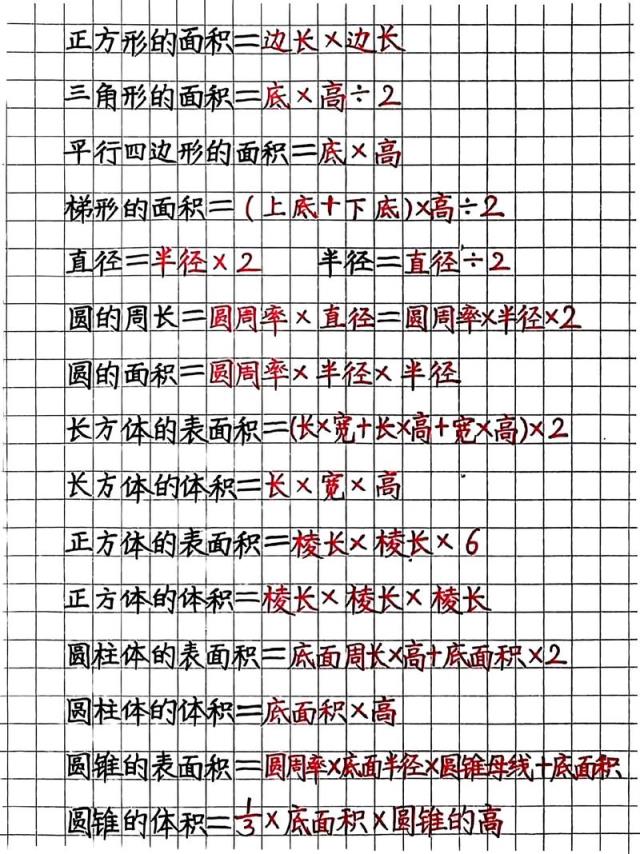 正方形的面积=边长×边长
三角形的面积=底×高÷2
平行四边形的面积=底×高
梯形的面积=(上底+下底)×高÷2
直径=半径×2 半径=直径÷2
圆的周长=圆周率×直径=圆周率×半径×2
圆的面积=圆周率×半径×半径
长方体的表面积=(长×宽+长×高+宽×高)×2
长方体的体积=长×宽×高
正方体的表面积=棱长×棱长×6
正方体的体积=棱长×棱长×棱长
圆柱体的表面积=底面周长×高+底面积×2
圆柱体的体积=底面积×高
圆锥的表面积=圆周率×底面半径×圆锥母线+底面积
圆锥的体积=1/3×底面积×圆锥的高